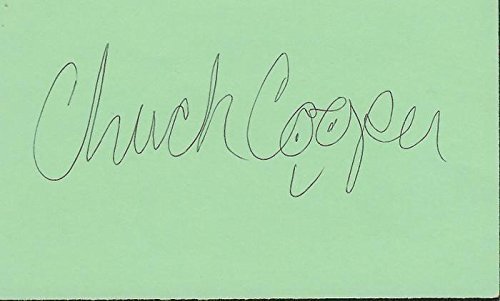 Chuck Cooper